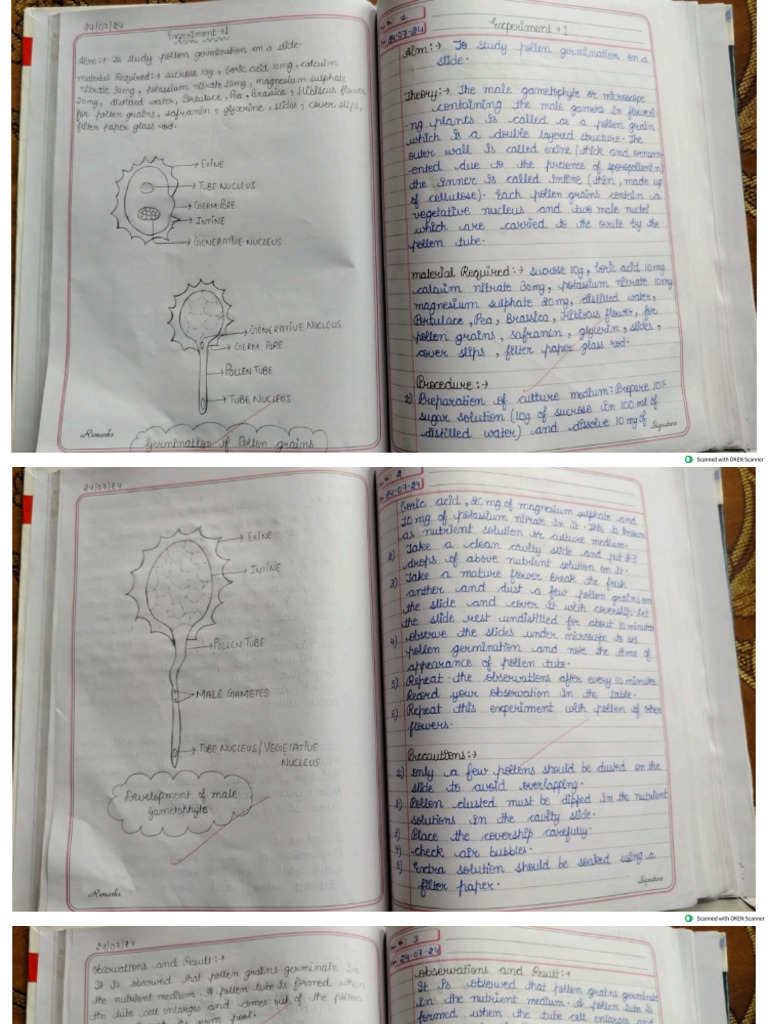 24/07/24
Experiment → 1
Aim:→ To study pollen germination on a slide.
material Required:→ sucrose 10g, boric acid 10mg, calcuim
nitrate 30mg, potassium nitrate 10mg, magnesium sulphate
20mg, distlled water, Portulace, Pea, Brassica, Hibiscus flower,
for pollen grains, safranin, glycerine, slides, cover slips,
filter paper glass rod.
EXINE
TUBE NUCLEUS
GERM PORE
INTINE
GENERATIVE NUCLEUS
GENERATIVE NUCLEUS
GERM PORE
POLLEN TUBE
TUBE NUCLEUS
Germination of Pollen grains
Remarks
1
24-07-24
Experiment → 1
Aim:→ To study pollen germination on a
slide.
Theory:→ The male gametophyte or microscope
containing the male gamets in flower-
-ng plants is called as a pollen grain
which is a double layered structure. The
outer wall is called exine (thick and ornam-
-ented due to the presence of sporopollenin)
the inner is called intine (thin, made up
of cellulose). Each pollen grains contain a
vegetative nucleus and two male nuclei
which are carried to the ovule by the
pollen tube.
material Required:→ sucrose 10g, boric acid 10mg
calcuim nitrate 30mg, potassium nitrate 10mg
magnesium sulphate 20mg, distilled water,
Portulace, Pea, Brassica, Hibiscus flower, for
pollen grains, safranin, glycerin, slides,
cover slips, filter paper glass rod.
Procedure:→
1) Preparation of culture medium: Prepare 10%
sugar solution (10g of sucrose in 100 ml of
distilled water) and dissolve 10 mg of
Signature
Scanned with OKEN Scanner
24/07/24
EXINE
INTINE
POLLEN TUBE
MALE GAMETES
TUBE NUCLEUS/VEGETATIVE
NUCLEUS
Development of male
gametophyte
Remarks
2
24-07-24
boric acid, 20 mg of magnesium sulphate and
10 mg of potassium nitrate in it. This is known
as nutrient solution or culture medium.
2) Take a clean cavity slide and put 2-3
drops of above nutrient solution on it.
3) Take a mature flower break the fresh
anther and dust a few pollen grains on
the slide and cover it with coverslip. Let
the slide rest undistilled for about 10 minutes
4) observe the slides under microscope to see
pollen germination and note the time of
appearance of pollen tube.
5) Repeat the observations after every 10 minutes
Record your observation in the table.
6) Repeat this experiment with pollen of other
flowers.
Precautions:→
1) only a few pollens should be dusted on the
slide to avoid overlapping.
2) Pollen dusted must be dipped in the nutrient
solutions in the cavity slide.
3) Place the coverslip carefully.
4) check air bubbles.
5) Extra solution should be soaked using a
filter paper.
Signature
Scanned with OKEN Scanner
24/07/24
observations and Result:→
It is observed that pollen grains germinate in
the nutrient medium. A pollen tube is formed when
the tube cell enlarges and comes out of the pollen
3
24-07-24
observations and Result:→
It is observed that pollen grains germinate
in the nutrient medium. A pollen tube is
formed when the tube cell enlarges and